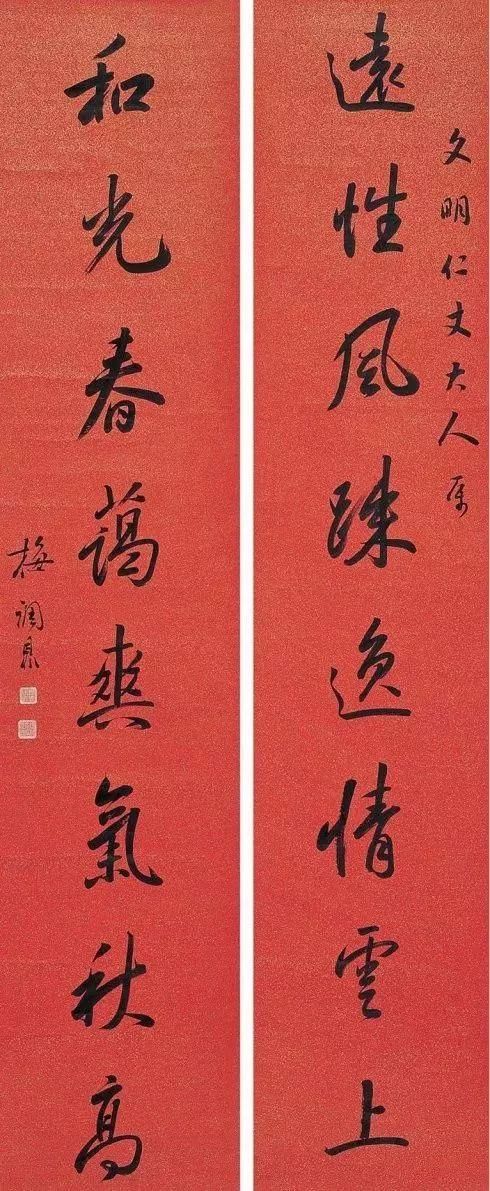 文明仁丈大人属
遠性風踈逸情雲上
和光春藹爽氣秋高
梅調鼎